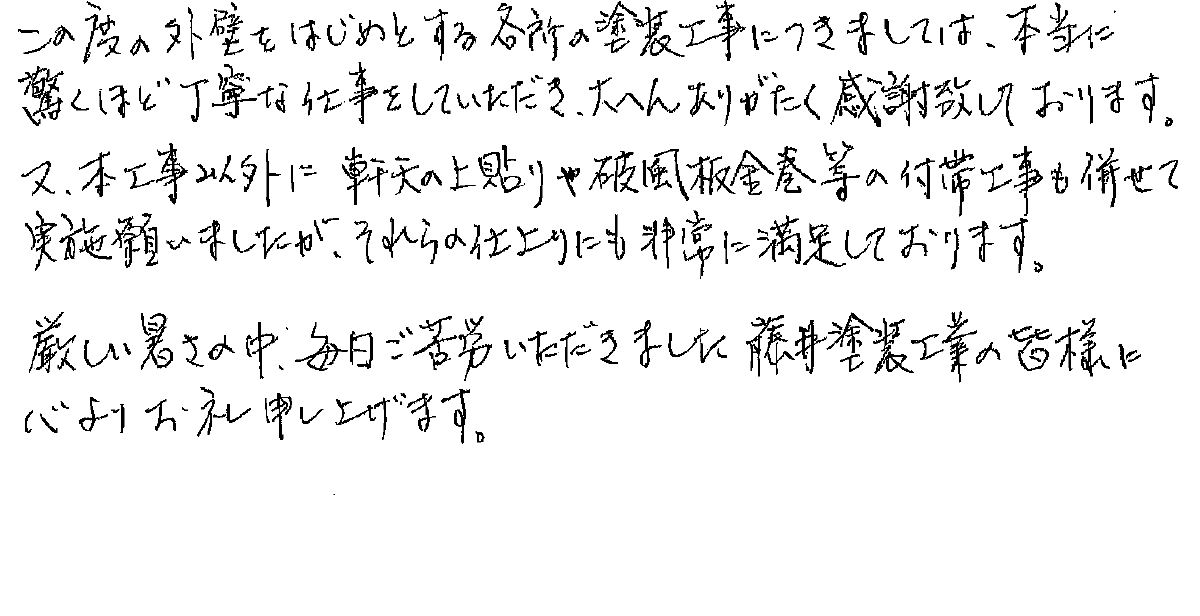 この度の外壁をはじめとする各所の塗装工事につきましては、本当に
驚くほど丁寧な仕事をしていただき、大へんありがたく感謝致しております。
又、本工事以外に軒天の上貼りや破風板金巻等の付帯工事も併せて
実施願いましたが、それらの仕上りにも非常に満足しております。
厳しい暑さの中、毎日ご苦労いただきました藤井塗装工業の皆様に
心よりお礼申し上げます。